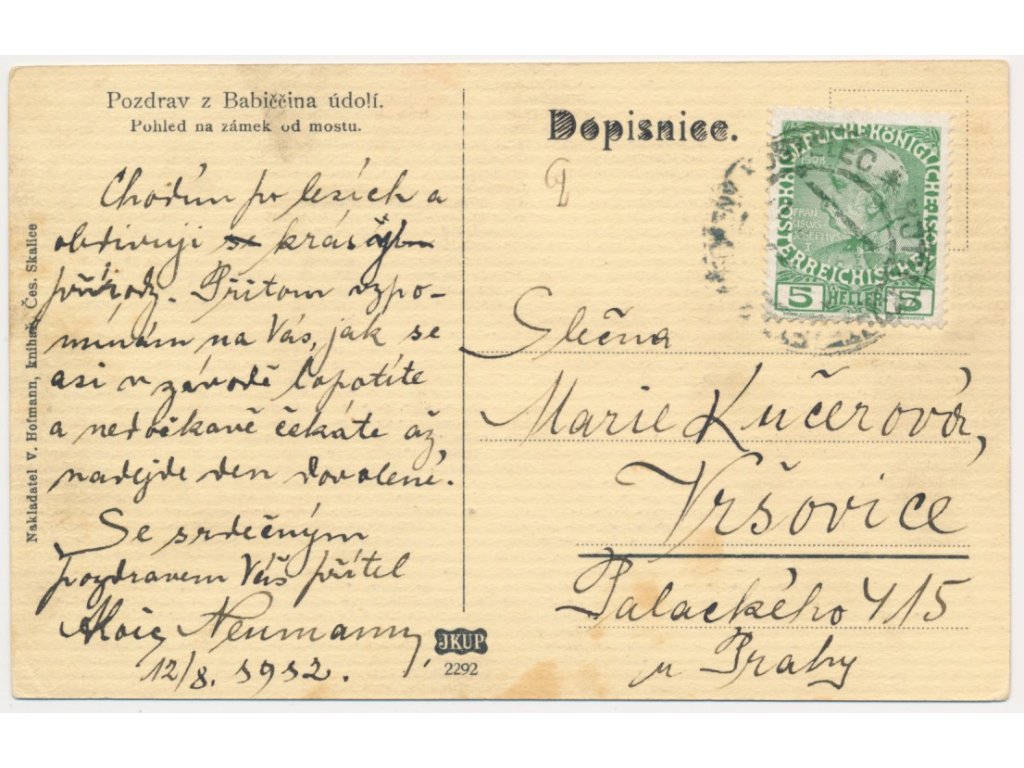 Pozdrav z Babiččina údolí.
Pohled na zámek od mostu.
Chodím po lesích a
obdivuji se krásám
přírody. Přitom vzpo-
mínám na Vás, jak se
asi v závodě lopotíte
a nedočkavě čekáte až
nadejde den dovolené.
Se srdečným
pozdravem Váš přítel
Alois Neumann,
12/8. 1912.
Nakladatel V. Hofmann, knihař, Čes. Skalice
JKUP
2292
Dopisnice.
1908
FRAN
CISCVS
IOSEPHVS
5 HELLER 5
Slečna
Marie Kučerová,
Vršovice
Palackého 415
u Prahy